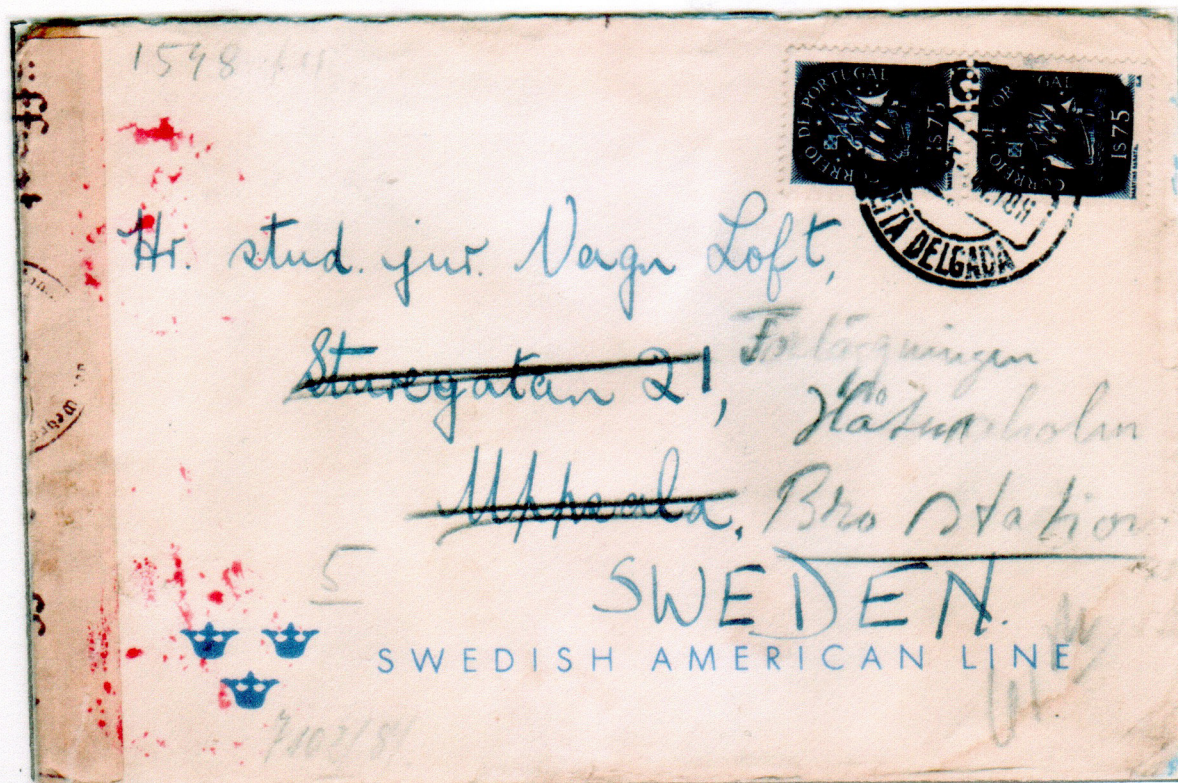 1548
CORREIO DE PORTUGAL 1$75
CORREIO DE PORTUGAL 1$75
PONTA DELGADA
Hr. stud. jur. Vagn Loft,
Sturegatan 21,
Förläggningen
Håtunaholm
Uppsala.
Bro station
SWEDEN.
5
SWEDISH AMERICAN LINE